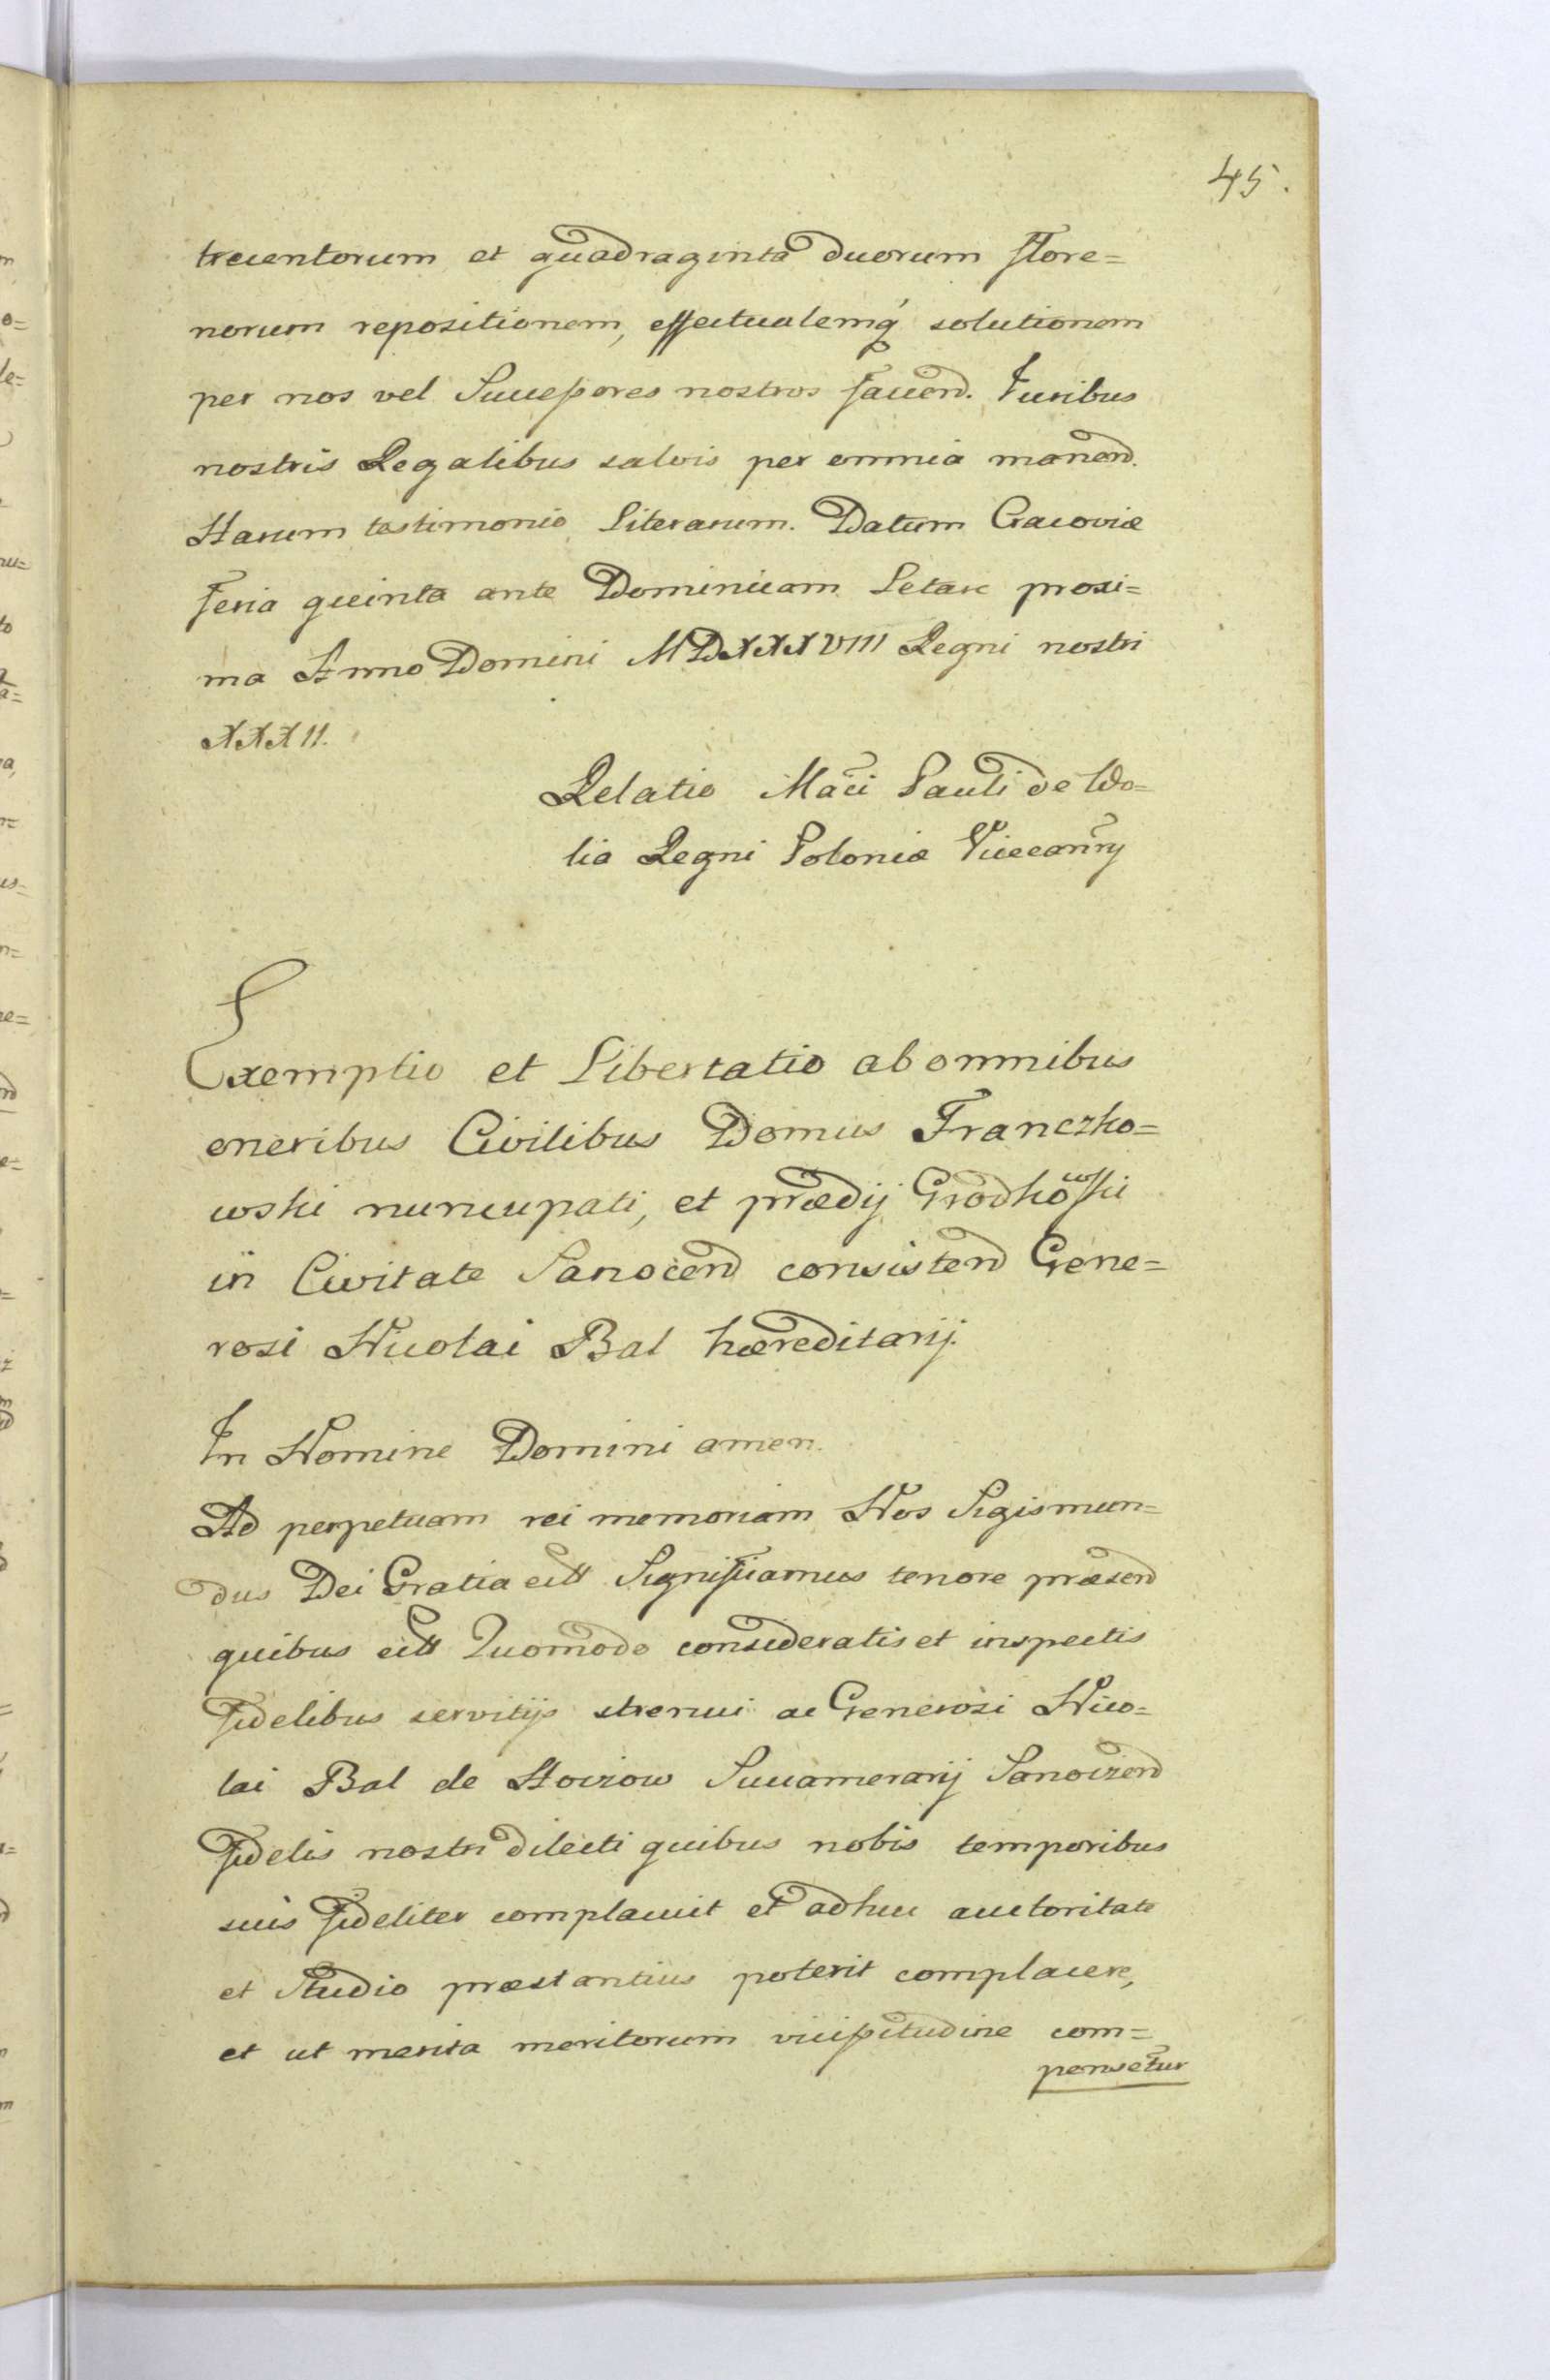 45.
trecentorum et quadraginta duorum flore=
norum repositionem, effectualemq́ solutionem
per nos vel Successores nostros faciend. Iuribus
nostris Regalibus salvis per omnia manend.
Harum testimonio Literarum. Datum Cracoviæ
feria quinta ante Dominicam Letare proxi=
ma Anno Domini MDXXXVIII Regni nostri
XXXII.
Relatio Maci Pauli de Wo=
lia Regni Poloniæ Vicecanrij
Exemptio et Libertatio ab omnibus
oneribus Civilibus Domus Franczko=
wski nuncupati, et prædij Grodkowski
in Civitate Sanocend consistend Gene=
rosi Nicolai Bal hæreditarij.
In Nomine Domini amen.
Ad perpetuam rei memoriam Nos Sigismun=
dus Dei Gratia ectt Significamus tenore præsend
quibus ectt Quomodo consideratis et inspectis
fidelibus servitijs strenui ac Generosi Nico=
lai Bal de Hoczow Succamerarij Sanoczend
fidelis nostri dilecti quibus nobis temporibus
suis fideliter complacuit et adhuc auctoritate
et Studio præstantius poterit complacere,
et ut merita meritorum vicissitudine com=
pensetur